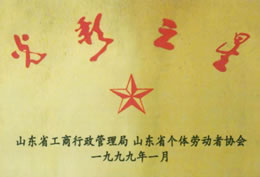 光彩之星
山东省工商行政管理局 山东省个体劳动者协会
一九九九年一月